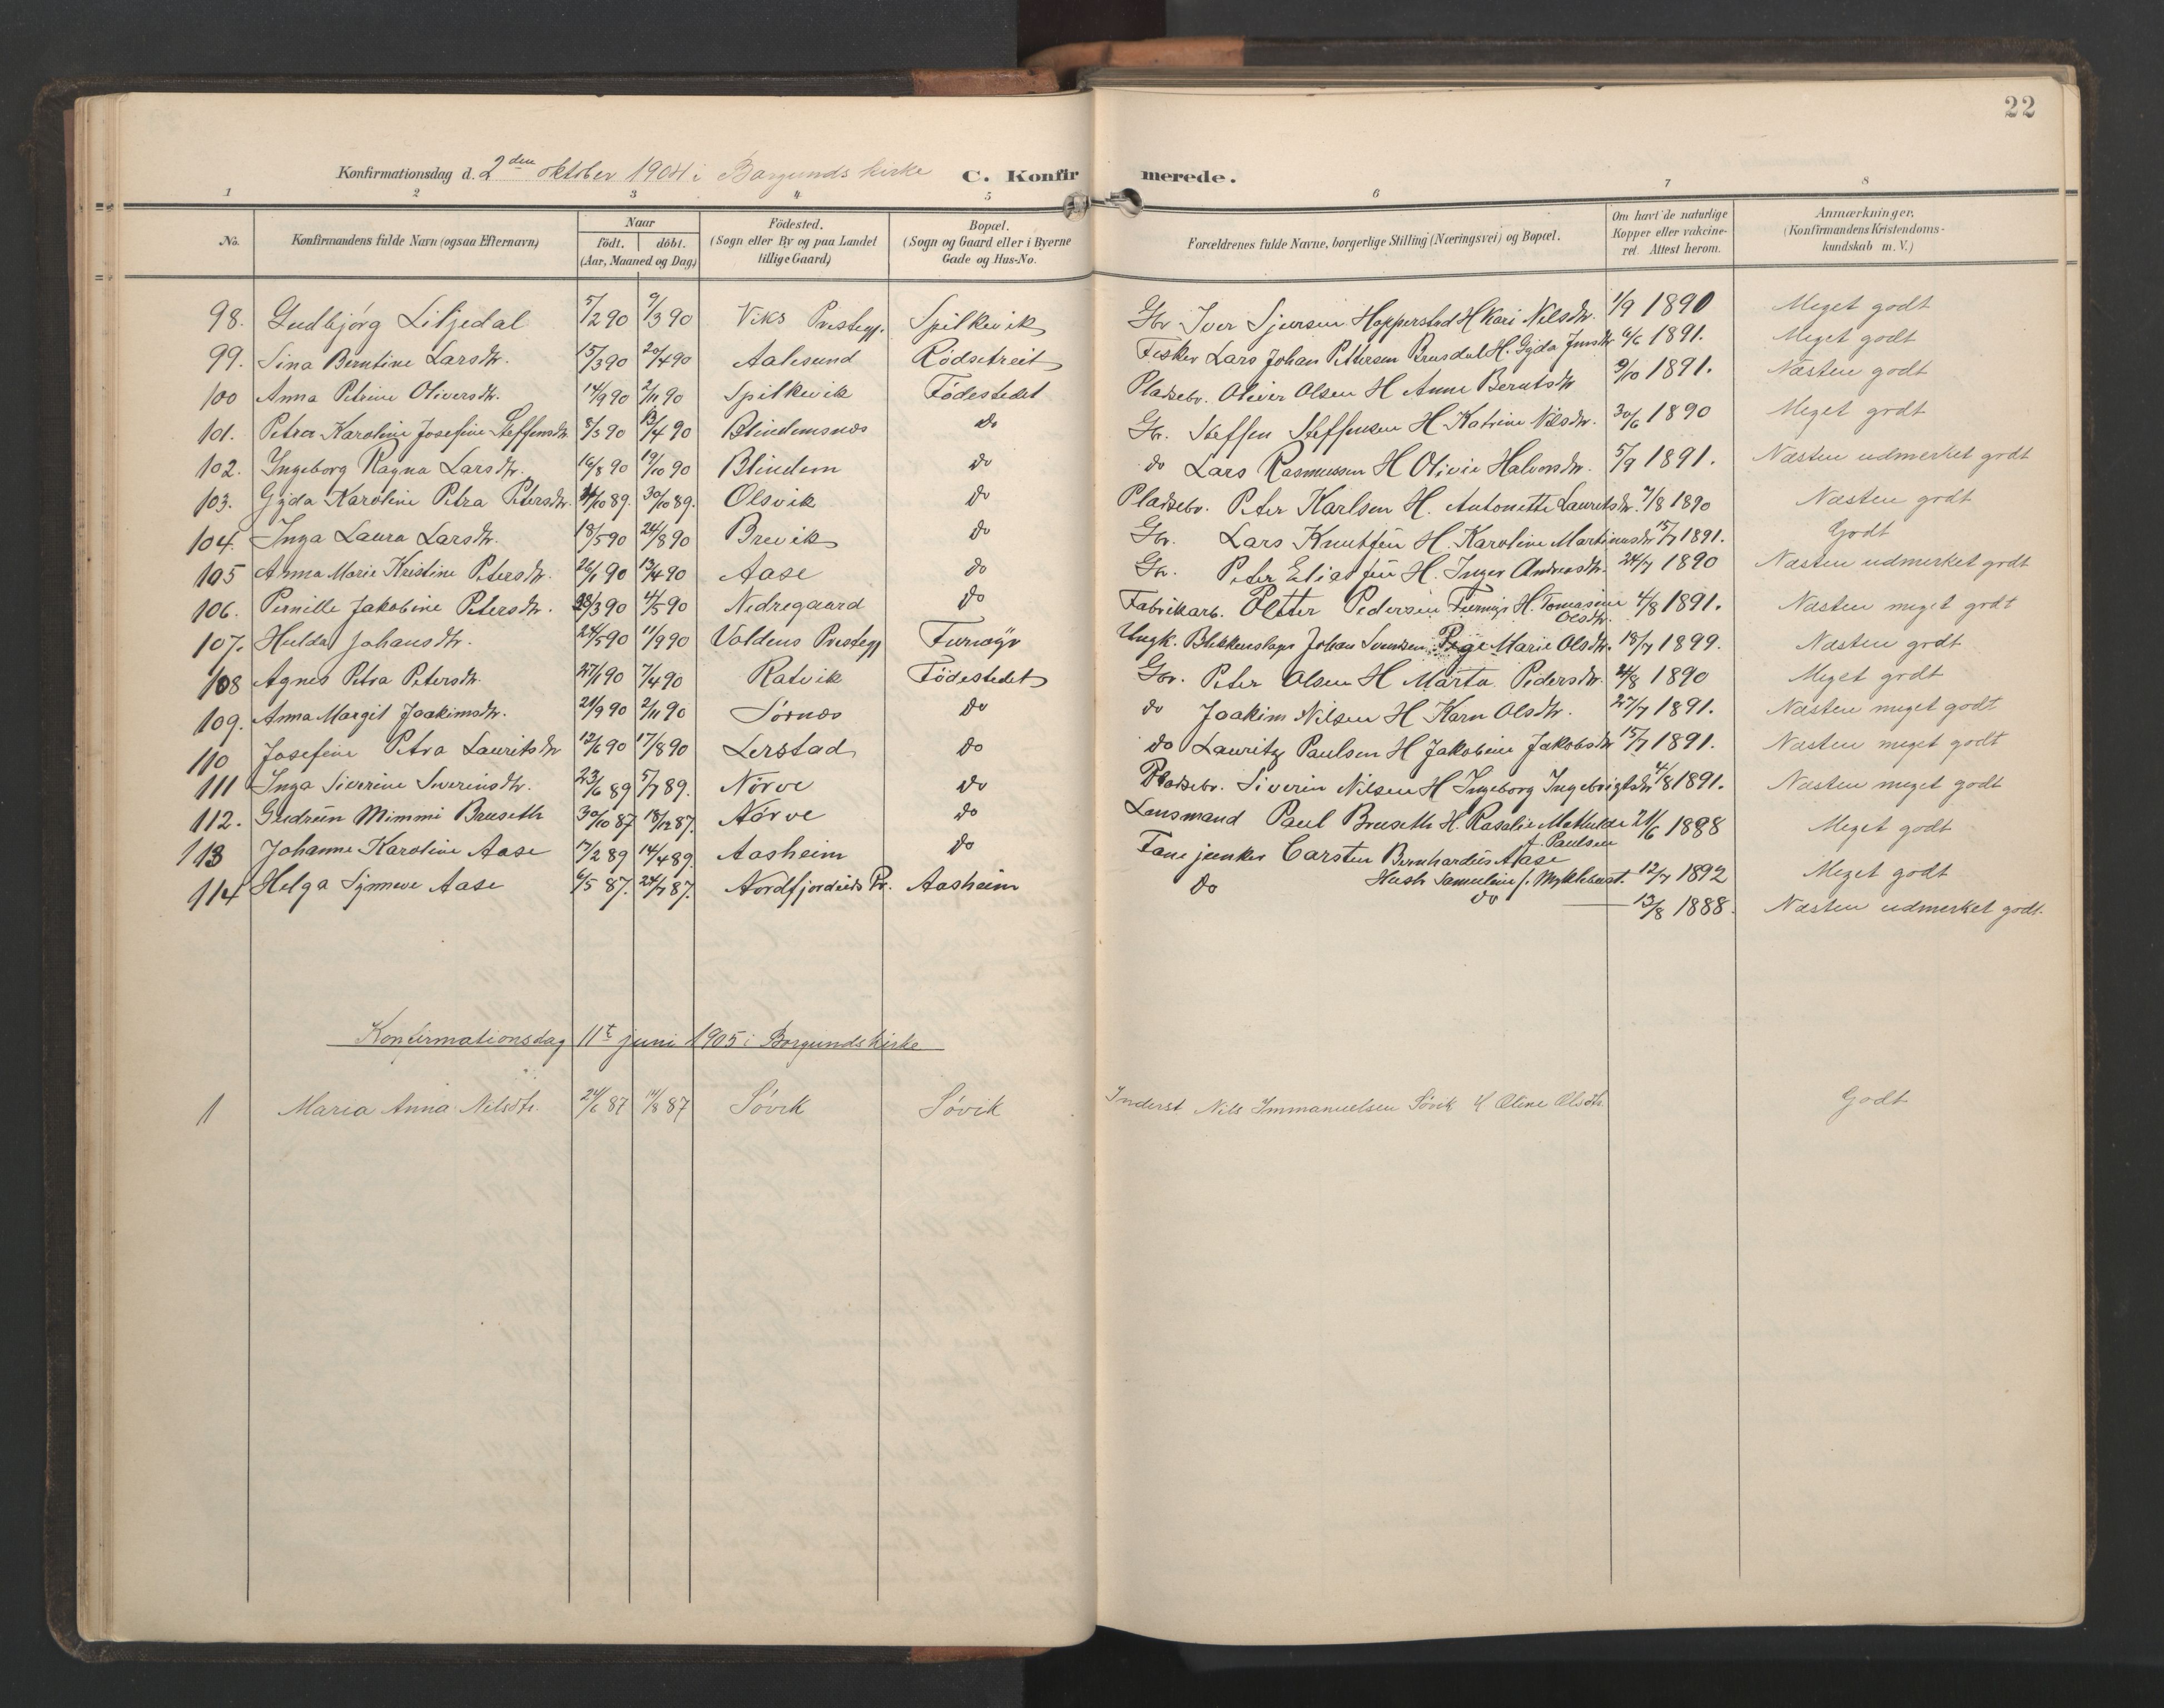 22
Konfirmationsdag d. 2den oktober 1904 i Borgunds kirke C. Konfirmerede.
1 2 3 4 5 6 7 8
No. Konfirmandens fulde Navn (ogsaa Efternavn) Naar født. døbt. (Aar, Maaned og Dag) Födested. (Sogn eller By og paa Landet tillige Gaard) Bopæl. (Sogn og Gaard eller i Byerne Gade og Hus-No. Forældrenes fulde Navne, borgerlige Stilling (Næringsvei) og Bopæl. Om havt de naturlige Kopper eller vakcineret. Attest herom. Anmærkninger. (Konfirmandens Kristendomskundskab m. V.)
98. Gudbjörg Liljedal 5/2 90 9/3 90 Viks Prestegj. Spilkevik Gbr. Iver Sjursen Hopperstad H Kari Nilsdtr. 1/9 1890 Meget godt
99. Sina Berntine Larsdtr. 15/3 90 20/4 90 Aalesund Rödsetreit Fisker Lars Johan Pettersen Brusdal H. Gyda Jensdtr 6/6 1891. Meget godt
100 Anna Petrine Oliversdtr. 14/9 90 2/11 90 Spilkevik Födestedet Pladsebr. Oliver Olsen H Anne Berntsdtr 9/10 1891. Næsten godt
101. Petra Karoline Josefine Steffensdtr. 8/3 90 13/4 90 Blindemsnes do Gbr. Steffen Steffensen H Katrine Nilsdtr. 30/6 1890 Meget godt
102. Ingeborg Ragna Larsdtr. 16/8 90 19/10 90 Blindem do do Lars Rasmussen H Olivie Halvorsdtr. 5/9 1891. Næsten udmerket godt
103. Gyda Karoline Petra Petersdtr. /10 89. 30/10 89. Olsvik do Pladsebr. Peter Karlsen H. Antonette Lauritsdtr. 7/8 1890 Næsten godt
104. Inga Laura Larsdtr. 18/5 90 24/8 90 Brevik do Gbr. Lars Knutsen H. Karoline Martinusdtr 15/7 1891. Godt
105 Anna Marie Kristine Petersdtr. 26/1 90 13/4 90 Aase do Gbr. Peter Eliassen H. Inger Andreasdtr. 24/7 1890 Næsten udmerket godt
106. Pernille Jakobine Petersdtr. 28/3 90 4/5 90 Nedregaard do Fabrikarb. Petter Pedersen H. Tomasine Olsdtr. 4/8 1891. Næsten meget godt
107. Hulda Johansdtr. 24/5 90 11/9 90 Voldens Prestegj Ungk. Blikkenslager Johan Svendsen Pige Marie Olsdtr. 18/7 1899. Næsten godt
108 Agnes Petra Petersdtr. 27/1 90 7/4 90 Ratvik Födestedet Gbr. Peter Olsen H Marta Pedersdtr. 24/8 1890 Meget godt
109. Anna Margit Joakimsdtr. 29/9 90 2/11 90 Sörnes do do Joakim Nilsen H Karn Olsdtr. 27/7 1891. Næsten meget godt
110 Josefine Petra Lauritsdtr 12/6 90 17/8 90 Lerstad do do Lauritz Paulsen H Jakobine Jakobsdtr 15/7 1891. Næsten meget godt
111 Inga Siverine Siverinsdtr. 23/6 89 5/7 89. Nörve do Pladsebr. Siverin Nilsen H Ingeborg Ingebrigtsdtr 4/8 1891. Næsten meget godt
112. Gudrun Mimmi Bruseth 30/10 87 18/12 87. Nörve do Lensmand Paul Bruseth H. Rosalie Mathilde f. Paulsen 21/6 1888 Meget godt
113 Johanne Karoline Aase 17/2 89 14/4 89. Aasheim do Fanejunker Carsten Bernhardus Aase Hustr Samueline f. Myklebust. 12/7 1892 Meget godt
114 Helga Synneve Aase 6/5 87. 24/7 87. Nordfjordeids Pr. Aasheim do do 13/8 1888. Næsten udmerket godt.
Konfirmationsdag 11te juni 1905 i Borgunds kirke
1 Maria Anna Nilsdtr. 24/6 87 14/8 87 Sövik Sövik Inderst Nils Immanuelsen Sövik H Oline Olsdtr. Godt